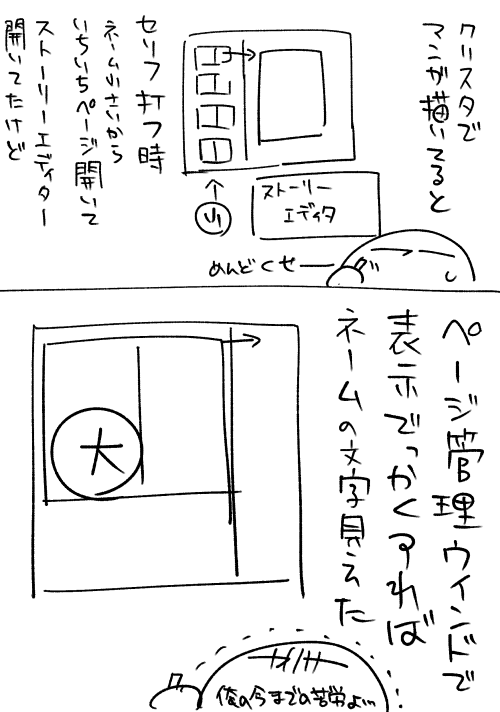 クリスタで
マンガ描いてると
セリフ打つ時
ネーム小さいから
いちいちページ開いて
ストーリーエディター
開いてたけど
小
ストーリー
エディタ
めんどくせー
ページ管理ウインドで
表示でっかくすれば
ネームの文字見えた
大
俺の今までの苦労よ…